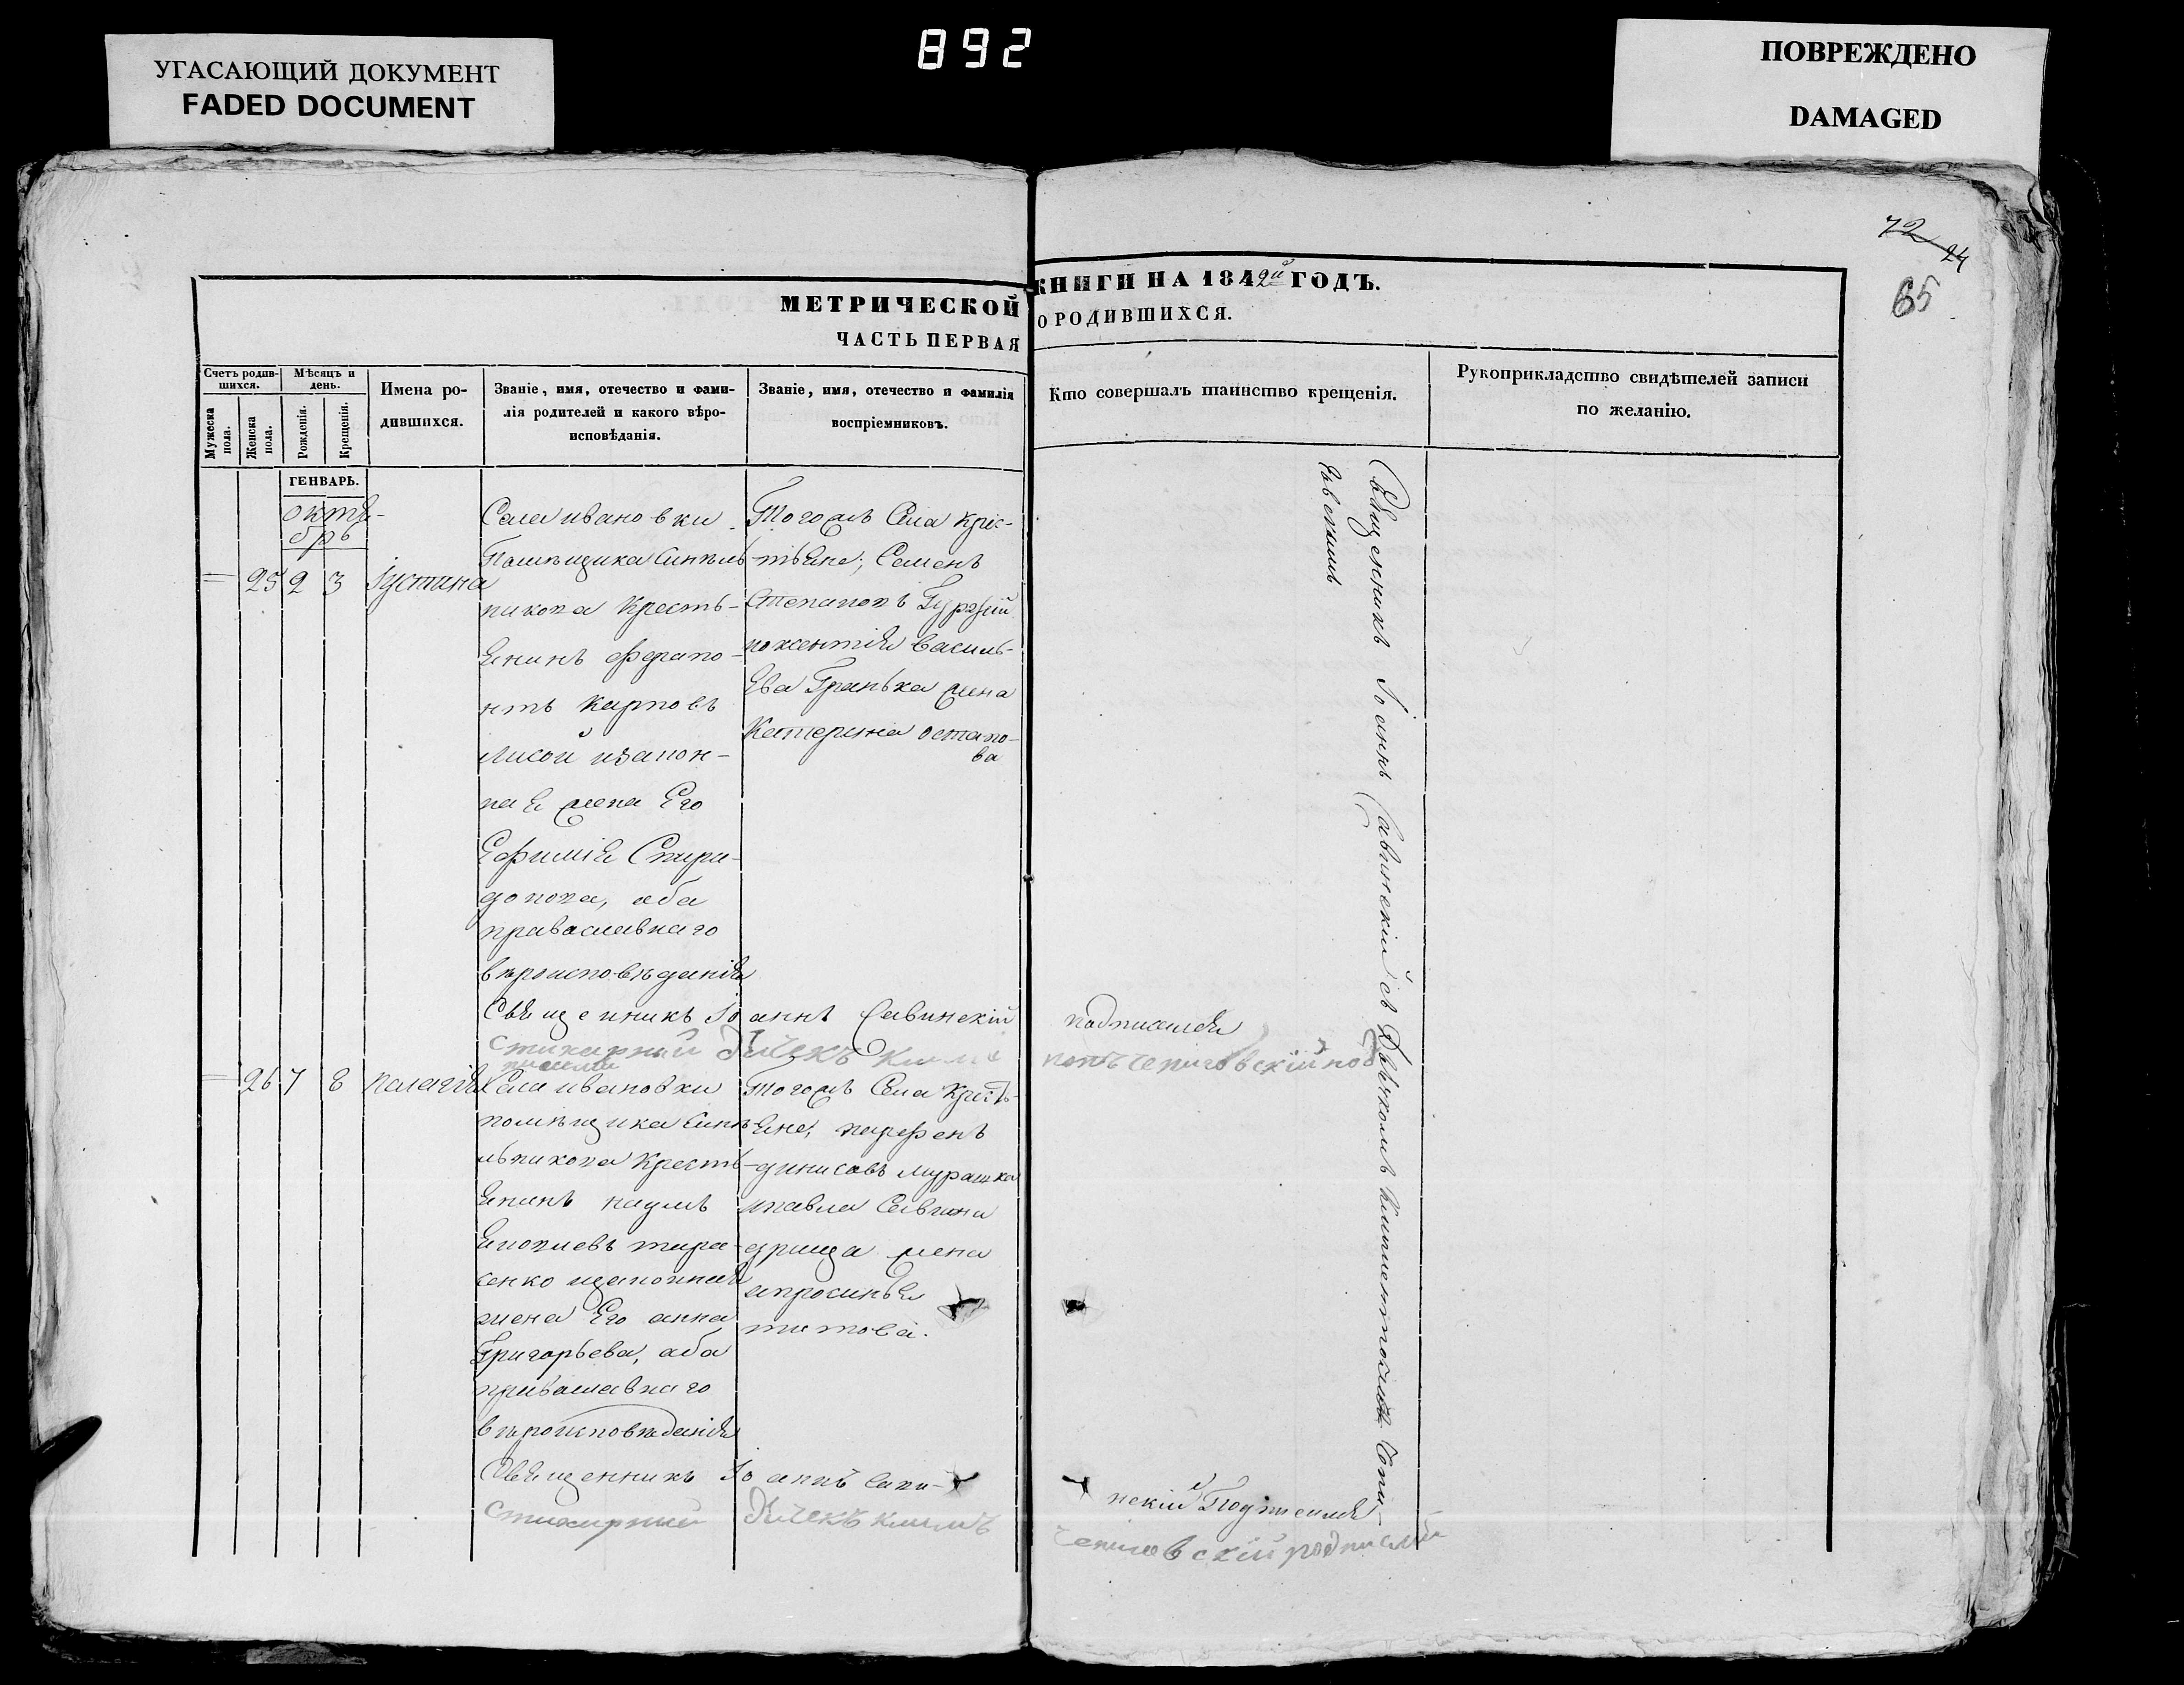 892
УГАСАЮЩИЙ ДОКУМЕНТ
FADED DOCUMENT
ПОВРЕЖДЕНО
DAMAGED
72
24
65
МЕТРИЧЕСКОЙ КНИГИ НА 1842й ГОДЪ.
ЧАСТЬ ПЕРВАЯ О РОДИВШИХСЯ.
Счетъ родив-
шихся.
Мужеска пола.
Женска пола.
Мѣсяцъ и
день.
Рожденія.
Крещенія.
Имена ро-
дившихся.
Званіе, имя, отечество и фами-
лія родителей и какого вѣро-
исповѣданія.
Званіе, имя, отечество и фамилія
воспріемниковъ.
Кто совершалъ таинство крещенія.
Рукоприкладство свидѣтелей записи
по желанію.
ГЕНВАРЬ.
октя-
брь
25 2 3 Іустина
Села ивановки
Помѣщика Синель
никова Кресть-
янинъ ферапо-
нтъ Карповъ
Лисой изакон-
ная жена Его
Ефимія Спири-
донова, оба
православнаго
вѣроисповѣданія
Тогожъ Села Крес-
тьяне; Семенъ
Степановъ Гуржій
Василь-
ева жена
Катерина остапо-
ва
Священникъ Іоаннъ Савинскій подписался
стихарный Дьячекъ
26 7 8 Палагія
Села ивановки
помѣщика Сине
льникова Кресть
янинъ наумъ
тара-
сенко изаконная
жена Его анна
Григорьева, оба
православнаго
вѣроисповѣданія
Тогожъ Села Кресть-
яне, парфенъ
динисовъ Мурашка
ипавла Саввина
жена
апросинья
титова.
Священникъ Іоаннъ Сави-
нскій Подписался
стихарный Дьячекъ
подписался
Священникъ Іоаннъ Савинскій съ Дьячкомъ